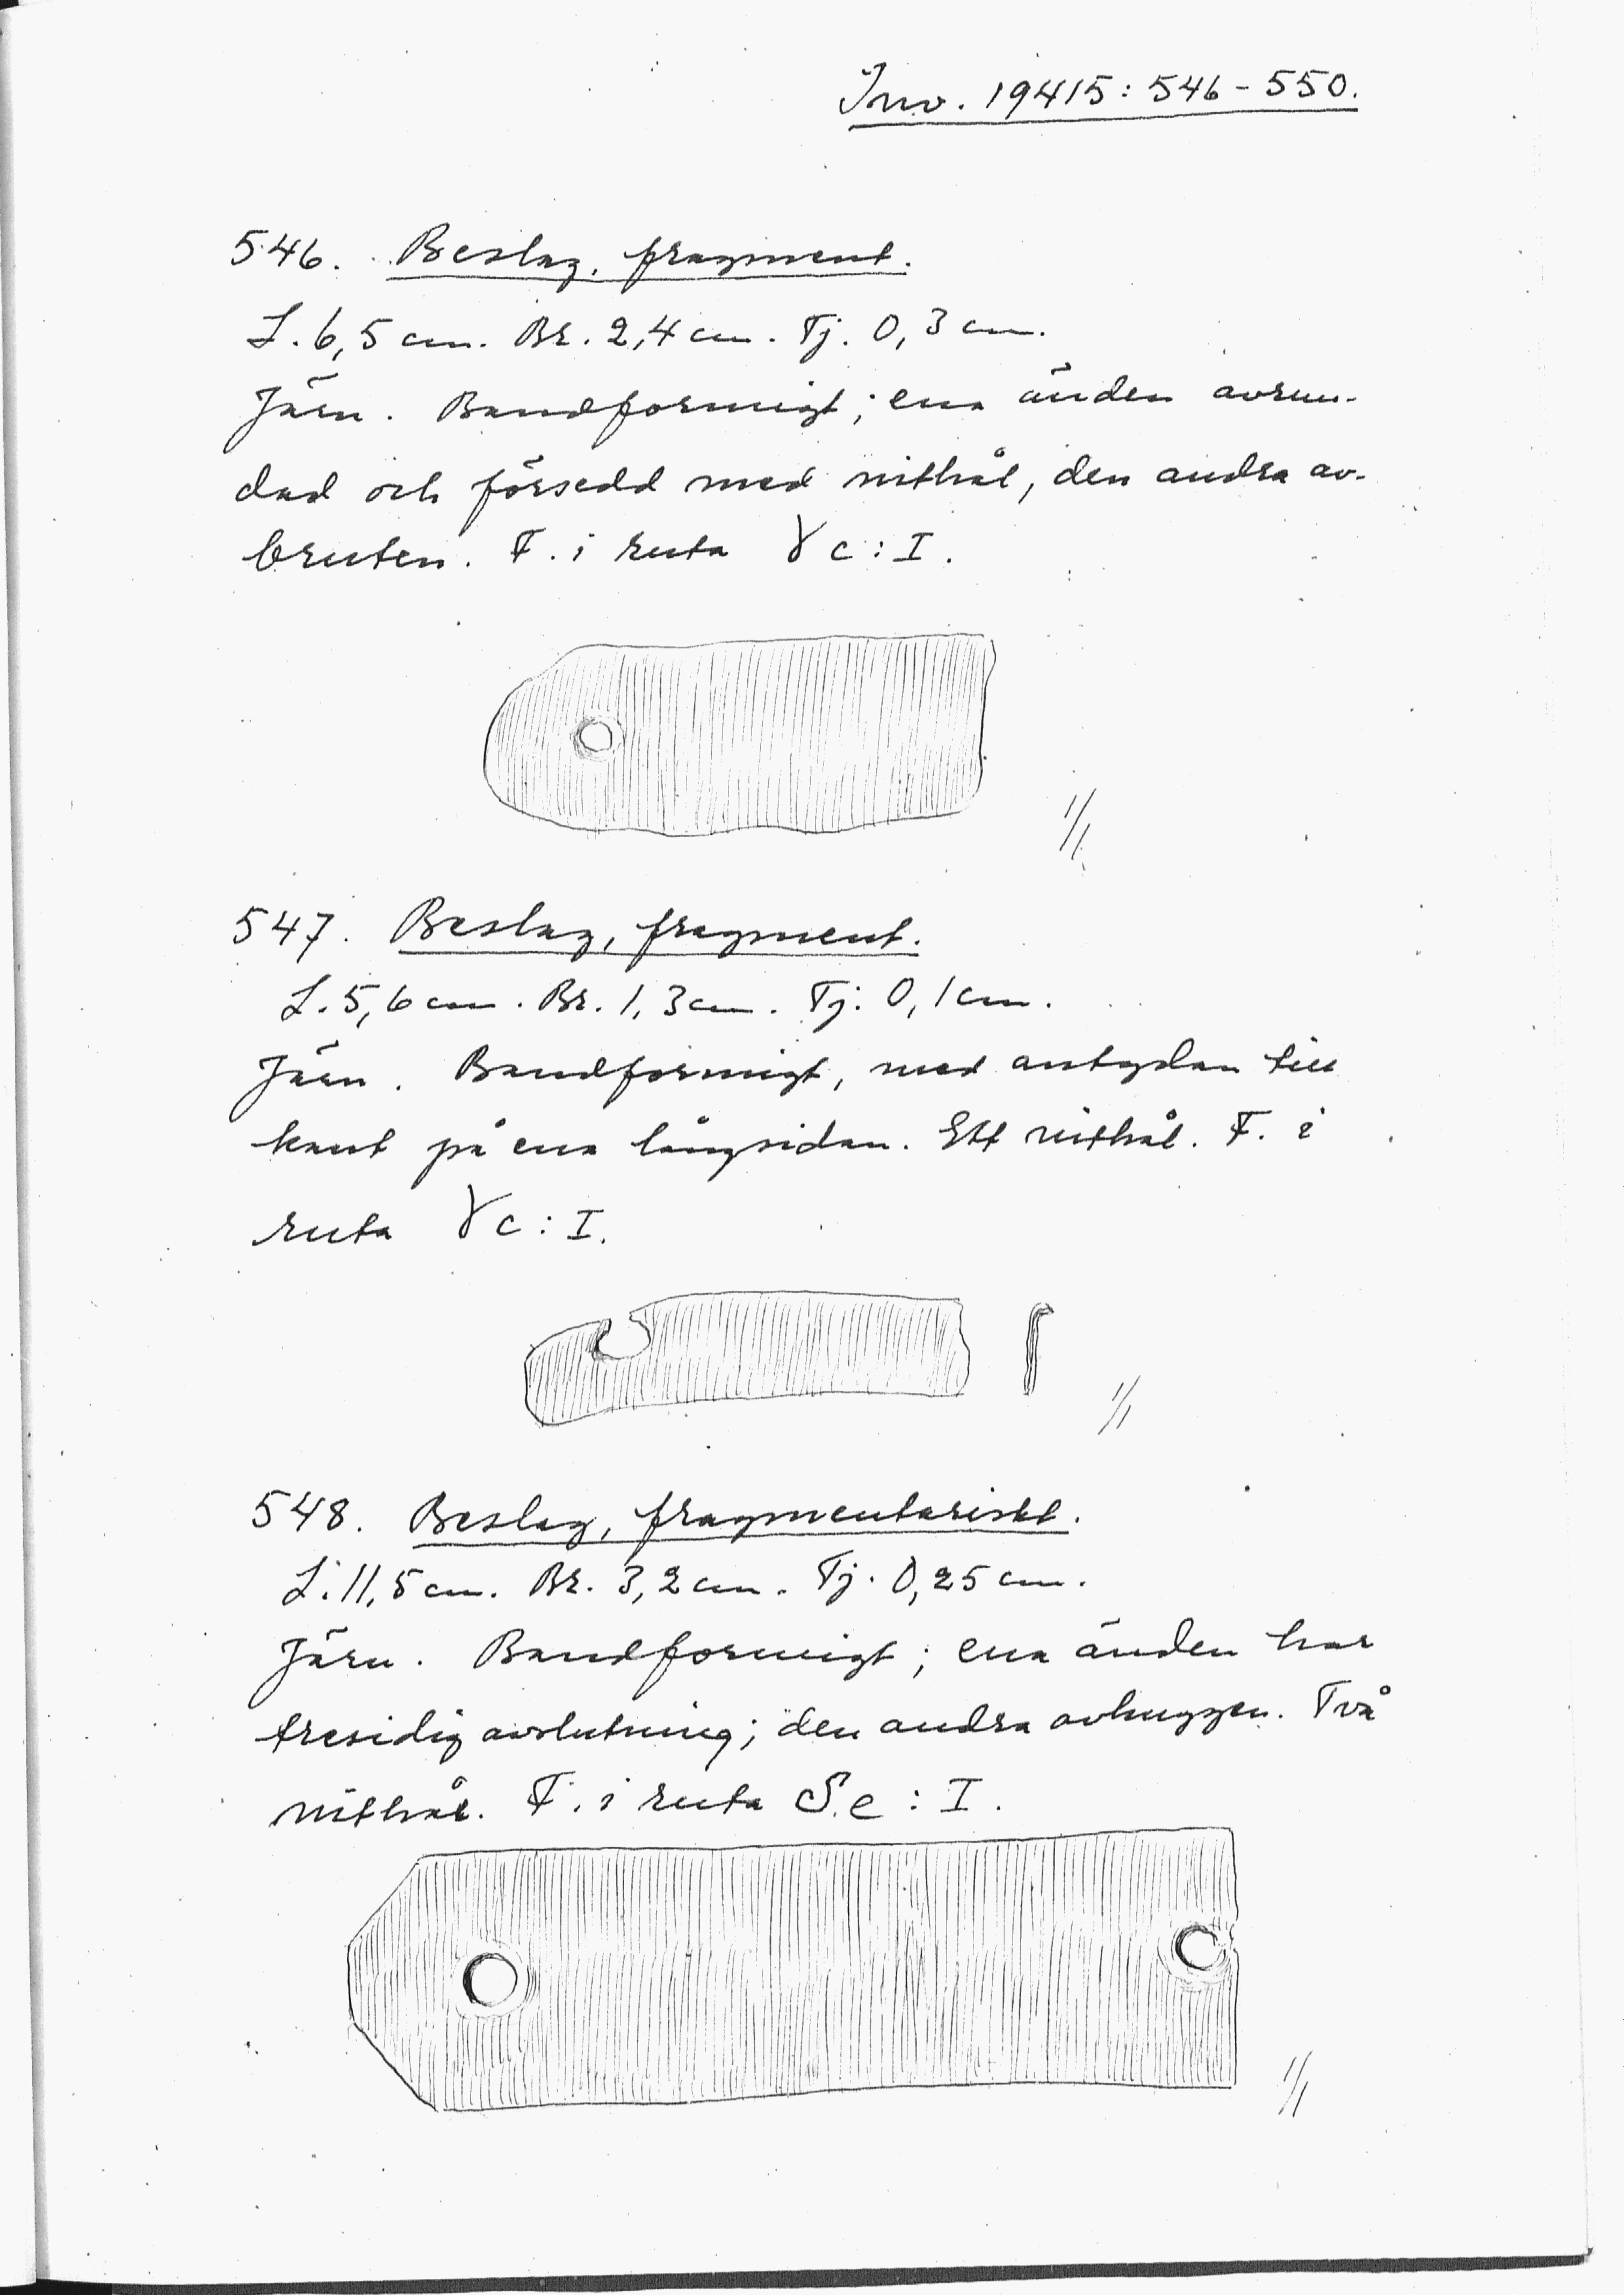 Inv. 19415: 546-550.
546. Beslag, fragment.
L. 6,5 cm. Br. 2,4 cm. Tj. 0,3 cm.
Järn. Bandformigt; ena änden avrun-
dad och försedd med nithål, den andra av-
bruten. F. i ruta γ c: I.
1/1
547. Beslag, fragment.
L. 5,6 cm. Br. 1,3 cm. Tj. 0,1 cm.
Järn. Bandformigt, med antydan till
kant på ena långsidan. Ett nithål. F. i
ruta γ c: I.
1/1
548. Beslag, fragmentariskt.
L. 11,5 cm. Br. 3,2 cm. Tj. 0,25 cm.
Järn. Bandformigt; ena änden har
tresidig avslutning; den andra avhuggen. Två
nithål. F. i ruta δ e: I.
1/1